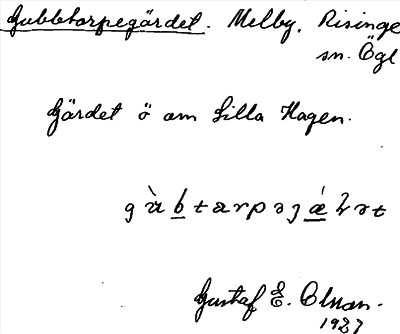 Gubbetorpegärdet. Melby, Risinge
sn. Ögl
Gärdet ö om Lilla Hagen.
Gustaf E. Olson.
1927